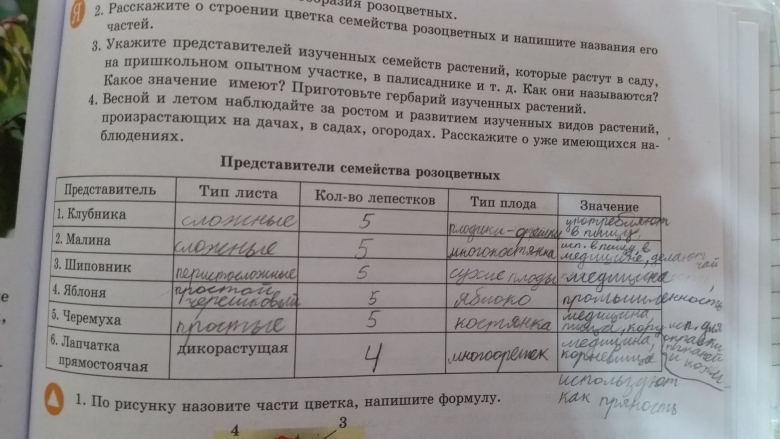 образия розоцветных.
2. Расскажите о строении цветка семейства розоцветных и напишите названия его
частей.
3. Укажите представителей изученных семейств растений, которые растут в саду,
на пришкольном опытном участке, в палисаднике и т. д. Как они называются?
Какое значение имеют? Приготовьте гербарий изученных растений.
4. Весной и летом наблюдайте за ростом и развитием изученных видов растений,
произрастающих на дачах, в садах, огородах. Расскажите о уже имеющихся на-
блюдениях.
Представители семейства розоцветных
Представитель Тип листа Кол-во лепестков Тип плода Значение
1. Клубника сложные 5 плодики-орешки употребляют
в пищу.
2. Малина сложные 5 многокостянка исп. в пищу, в
медицине, делают чай
3. Шиповник перистосложные 5 сухие плоды медицина
4. Яблоня простой
черешковый 5 яблоко промышленность
5. Черемуха простые 5 костянка медицина
пища, кору исп. для
6. Лапчатка
прямостоячая дикорастущая 4 многоорешек медицина,
корневища
используют
как пряность
и кожи
1. По рисунку назовите части цветка, напишите формулу.
4 3
Я